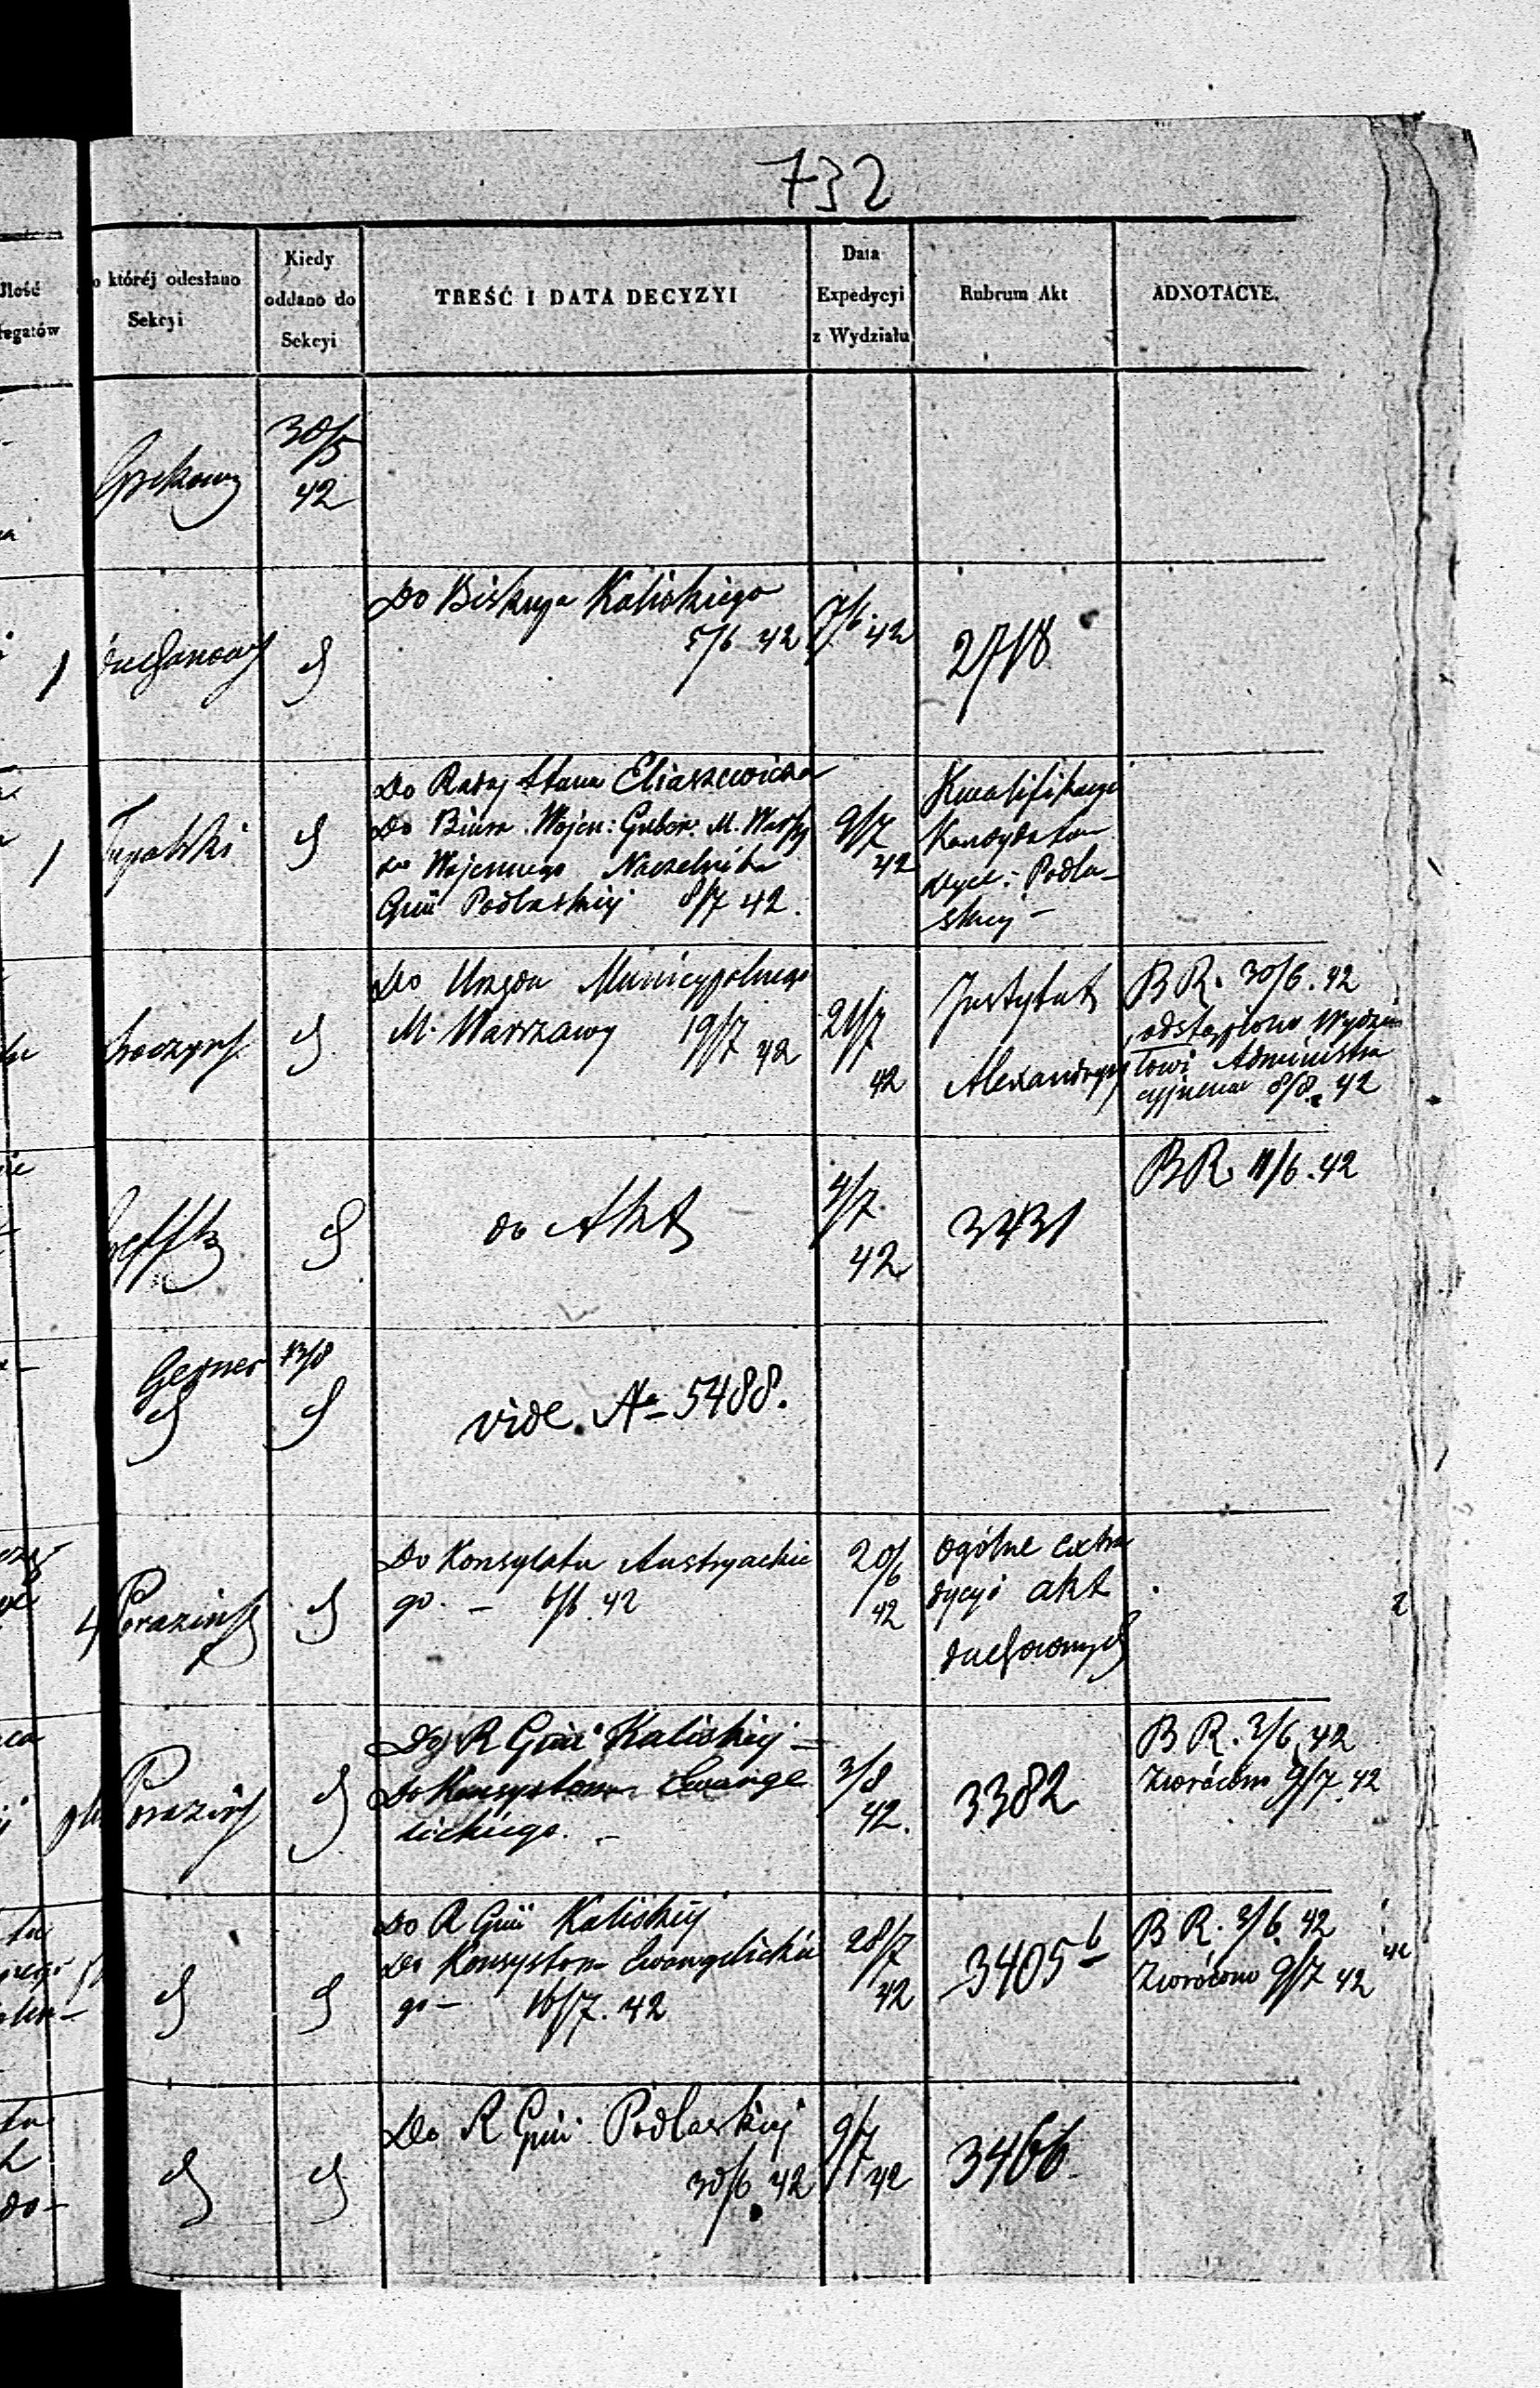 732
Ilość
któréj odesłano
Sekcyi
Kiedy
oddano do
Sekcyi
TREŚĆ I DATA DECYZYI
Data
Expedycyi
z Wydziału
Rubrum Akt
ADNOTACYE.
30/5
42
Do Biskupa Kaliskiego
5/6 42
7/6 42
2718
Do Radcy Stanu Eliaszewicza
Do Biura Wojen: Gubor: M. Warszy
do Wojennego Naczelnika
Gunii Podlaskiej 8/7 42.
9/7
42
Kwalifikacyi
Kandydatów
Dyec: Podla-
skiej –
Do Urzędu Municypalnego
M. Warszawy 19/7 42
21/7
42
Instytut
Alexandryj
B R. 30/6. 42
odstąpiono Wydzia
łowi Administra
cyjnemu 8/8. 42
do Akt
4/7.
42
3431
B R. 11/6. 42
Gerner
13/8
vide. No 5488.
Porazińs
Do Konsulatu Austryackie
go. – 6/6. 42
20/6
42
Ogólne extra
dycyi akt
duchownych
Porazińs
Do R Guii Kaliskiej –
Do Konsystorza Ewange
lickiego. –
3/8
42.
3382
B R. 3/6 42
Zwrócono 9/7. 42
Do R Guii Kaliskiej
Do Konsystorza Ewangelickie
go – 16/7. 42
28/7
42
3405 b
B R. 3/6. 42
Zwrócono 9/7 42
Do R Guii Podlaskiej
30/6. 42
9/7
42
3466.